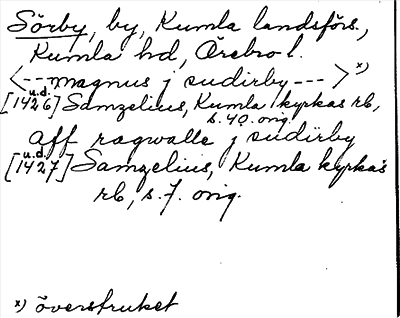 Sörby, by, Kumla landsförs.,
Kumla hd, Örebro l.
<---magnus j sudirby---> x)
[u.d. 1426] Samzelius, Kumla kyrkas rb,
s. 40. orig.
aff ragwalle j sudirby
[u.d. 1427] Samzelius, Kumla kyrkas
rb, s. 7. orig.
x) överstruket